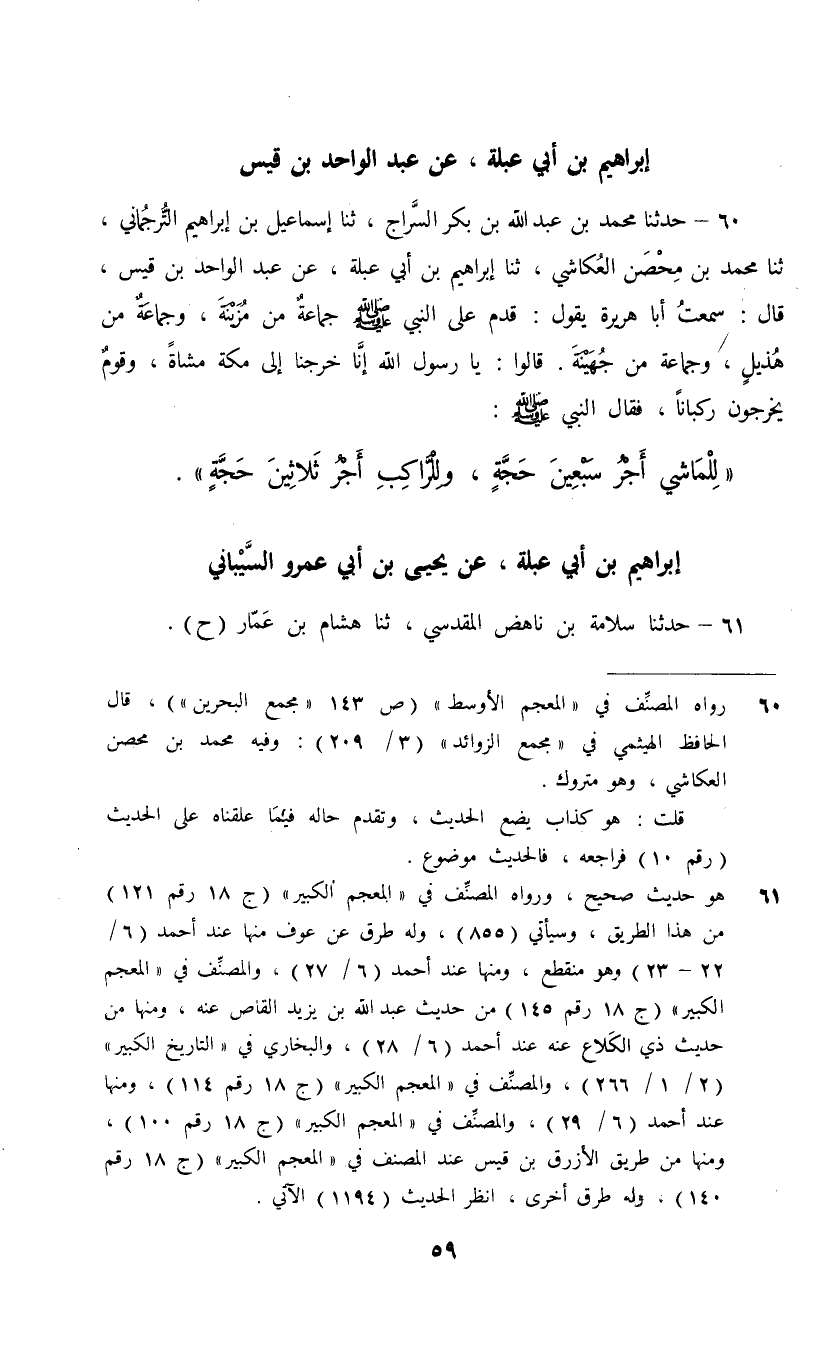 إبراهيم بن أبي عبلة ، عن عبد الواحد بن قيس
٦٠ – حدثنا محمد بن عبد الله بن بكر السَّراج ، ثنا إسماعيل بن إبراهيم التُّرجُماني ،
ثنا محمد بن مِحْصَن العُكاشي ، ثنا إبراهيم بن أبي عبلة ، عن عبد الواحد بن قيس ،
قال : سمعتُ أبا هريرة يقول : قدم على النبي ﷺ جماعةٌ من مُزَيْنَةَ ، وجماعَةٌ من
هُذيلٍ ، وجماعة من جُهَيْنَةَ . قالوا : يا رسول الله إنَّا خرجنا إلى مكة مشاةً ، وقومٌ
يخرجون ركباناً ، فقال النبي ﷺ :
« لِلْمَاشي أَجْرُ سَبْعِينَ حَجَّةٍ ، وللرَّاكِبِ أَجْرُ ثَلاثِينَ حَجَّةٍ » .
إبراهيم بن أبي عبلة ، عن يحيى بن أبي عمرو السَّيْباني
٦١ – حدثنا سلامة بن ناهض المقدسي ، ثنا هشام بن عَمّار (ح) .
٦٠ رواه المصنِّف في « المعجم الأوسط » (ص ١٤٣ « مجمع البحرين ») ، قال
الحافظ الهيثمي في « مجمع الزوائد » (٣/ ٢٠٩) : وفيه محمد بن محصن
العكاشي ، وهو متروك .
قلت : هو كذاب يضع الحديث ، وتقدم حاله فيمَا علقناه على الحديث
(رقم ١٠) فراجعه ، فالحديث موضوع .
٦١ هو حديث صحيح ، ورواه المصنِّف في « المعجم الكبير » (ج ١٨ رقم ١٢١)
من هذا الطريق ، وسيأتي (٨٥٥) ، وله طرق عن عوف منها عند أحمد (٦/
٢٢ – ٢٣) وهو منقطع ، ومنها عند أحمد (٦/ ٢٧) ، والمصنِّف في « المعجم
الكبير » (ج ١٨ رقم ١٤٥) من حديث عبد الله بن يزيد القاص عنه ، ومنها من
حديث ذي الكَلاع عنه عند أحمد (٦/ ٢٨) ، والبخاري في « التاريخ الكبير »
(٢/ ١/ ٢٦٦) ، والمصنِّف في « المعجم الكبير » (ج ١٨ رقم ١١٤) ، ومنها
عند أحمد (٦/ ٢٩) ، والمصنِّف في « المعجم الكبير » (ج ١٨ رقم ١٠٠) ،
ومنها من طريق الأزرق بن قيس عند المصنف في « المعجم الكبير » (ج ١٨ رقم
١٤٠) ، وله طرق أخرى ، انظر الحديث (١١٩٤) الآتي .
٥٩